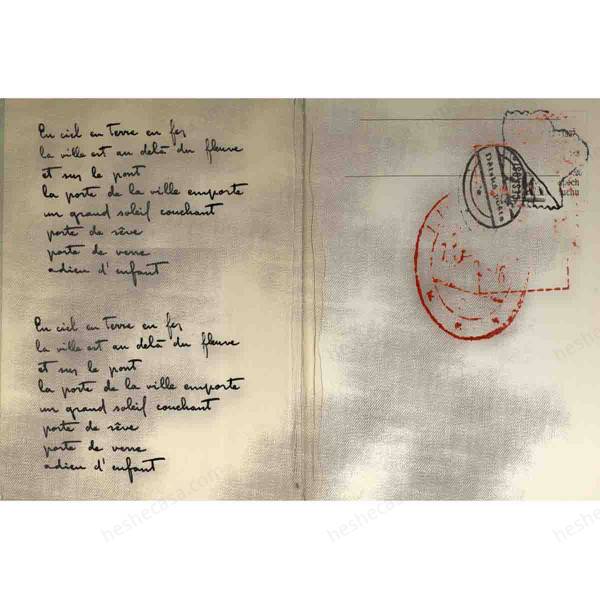 En ciel en Terre en fer
la ville est au delà du fleuve
et sur le pont
la porte de la ville emporte
un grand soleil couchant
porte de rêve
porte de verre
adieu d'enfant
En ciel en Terre en fer
la ville est au delà du fleuve
et sur le pont
la porte de la ville emporte
un grand soleil couchant
porte de rêve
porte de verre
adieu d'enfant
heshecasa.com